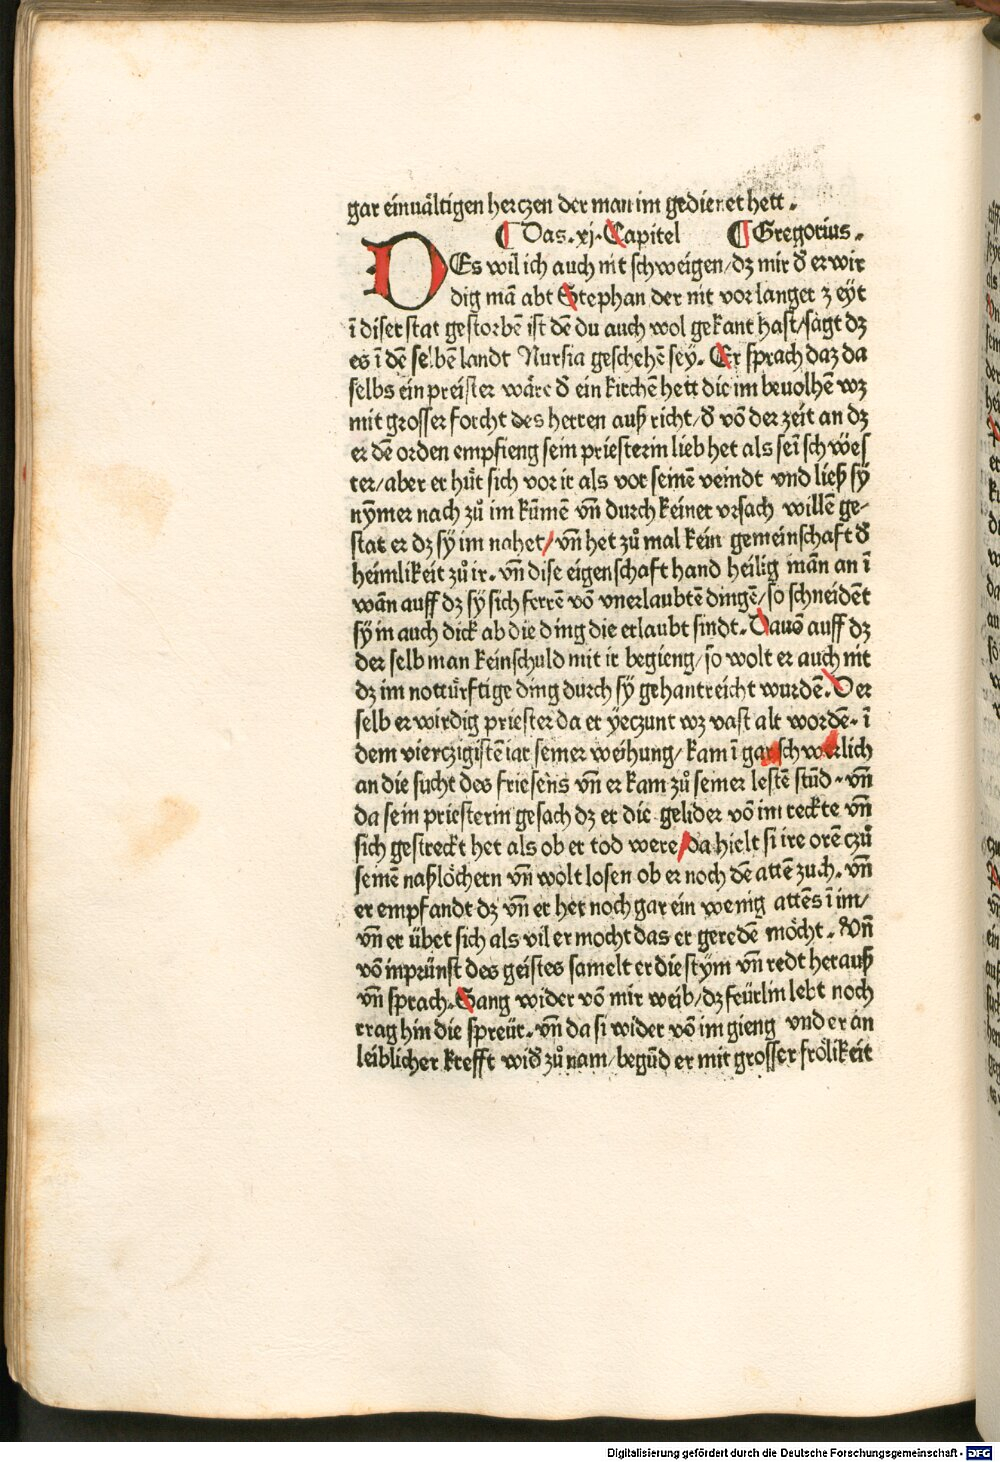 gar einuåltigen herczen der man im gedienet hett.
¶ Das .xj. Capitel ¶ Gregorius.
DEs wil ich auch nit schweigen/dz mir ð erwir
dig mā abt Stephan der nit vor langer zeyt
ī diser stat gestorbē ist dē du auch wol gekant hast/sagt dz
es ī dē selbē landt Nursia geschehē sey. Er sprach daz da
selbs ein preister wåre ð ein kirchē hett die im beuolhē wz
mit grosser forcht des herren auß richt/ð vō der zeit an dz
er dē orden empfieng sein priesterin lieb het als seī schwes
ter/aber er hůt sich vor ir als vor seinē veindt vnd ließ sy
nymer nach zů im kūmē vñ durch keiner vrsach willē ge⸗
stat er dz sy im nahet/vñ het zů mal kein gemeinschaft ð
heimlikeit zů ir. vñ dise eigenschaft hand heilig mān an ī
wān auff dz sy sich ferrē vō vnerlaubtē dingē/so schneidēt
sy in auch dick ab die ding die erlaubt sindt. Dauō auff dz
der selb man kein schuld mit ir begieng/so wolt er auch nit
dz im notturftige ding durch sy gehantreicht wurdē. Der
selb erwirdig priester da er yeczunt wz vast alt wordē. ī
dem vierczigistē iar seiner weihung/kam ī gar schwerlich
an die sucht des friesens vñ er kam zů seiner lestē stūd. vñ
da sein priesterin gesach dz er die gelider vō im reckte vñ
sich gestreckt het als ob er tod were/da hielt si ire orē czů
seinē naßlöchern vñ wolt losen ob er noch dē attē zuch. vñ
er empfandt dz vñ er het noch gar ein wenig attēs ī im/
vñ er übet sich als vil er mocht das er geredē möcht. Vñ
vō inprünst des geistes samelt er die stym vñ redt herauß
vñ sprach. Gang wider vō mir weib/dz feürlin lebt noch
trag hin die spreür. vñ da si wider vō im gieng vnd er an
leiblicher krefft wið zů nam/begūd er mit grosser frölikeit
Digitalisierung gefördert durch die Deutsche Forschungsgemeinschaft - DFG